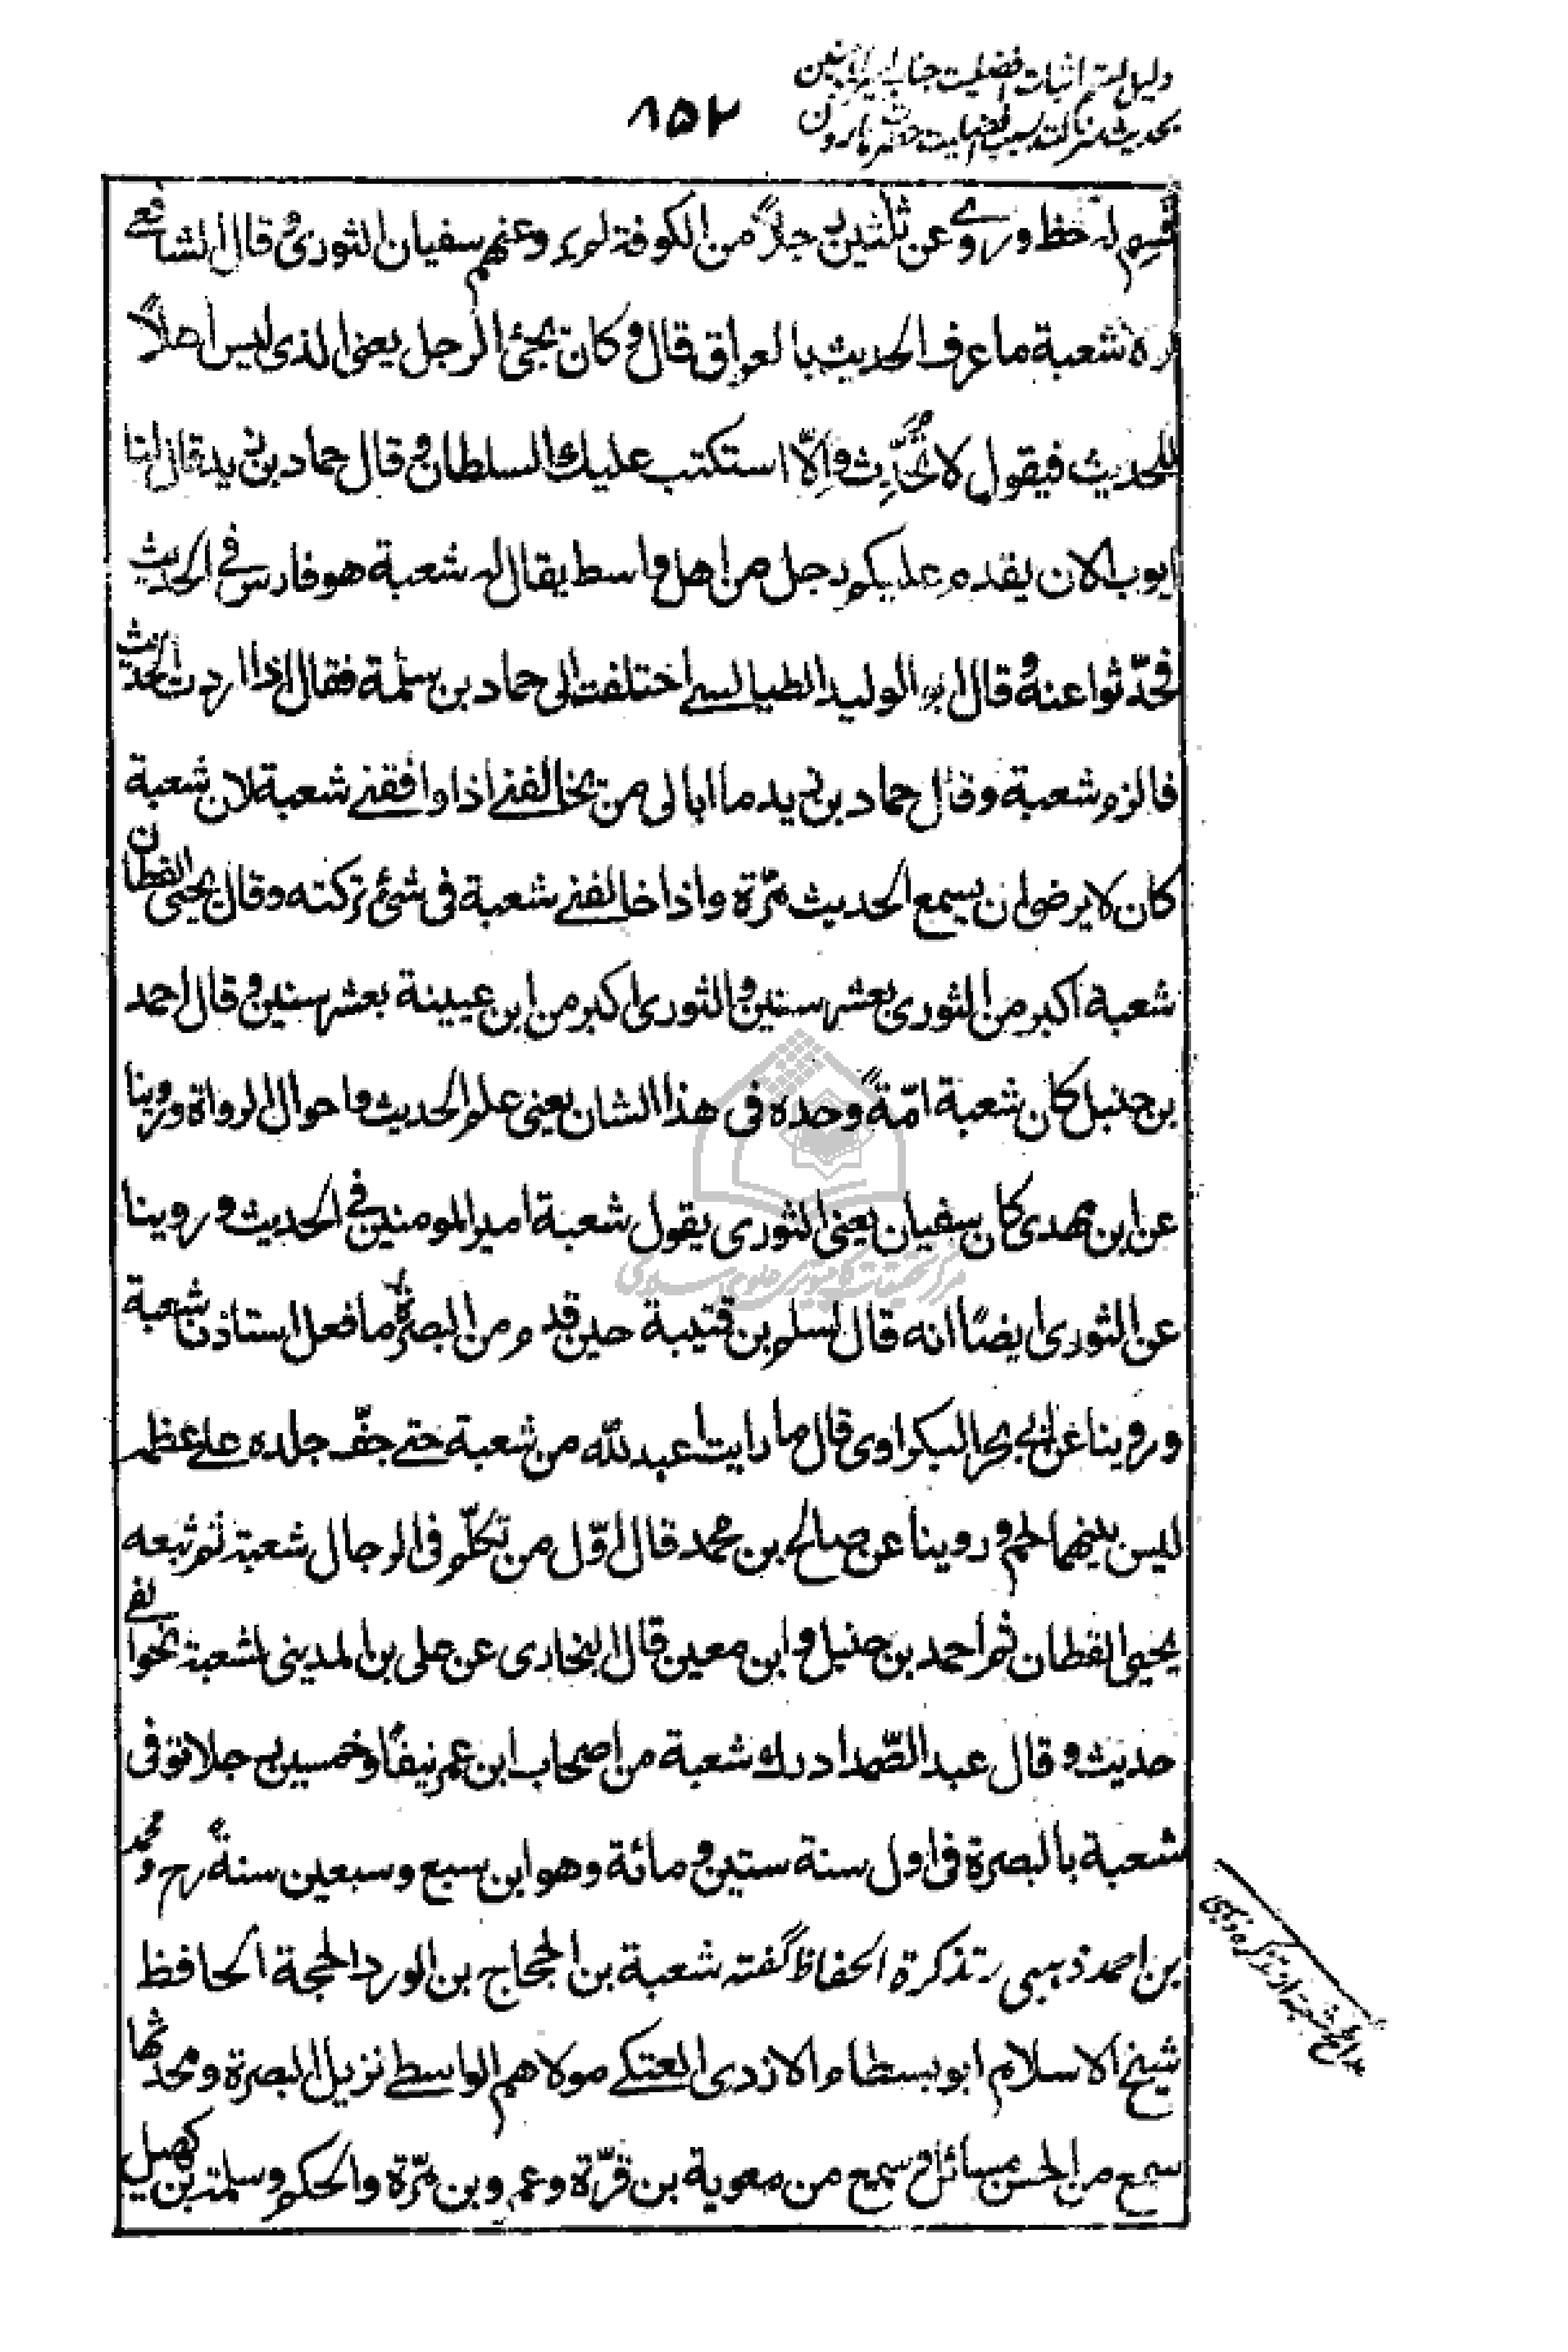 دلیل اثبات افضلیت جناب امیرالمؤمنین
بحدیث منزلت بسبب افضلیت حضرت هارون
٨٥٢
لم حظ وروى عن ثلثين رجلاً من الكوفة وعنهم سفيان الثورى وقال الشافعے
شعبة ما عرف الحديث بالعراق قال وكان يجئ الرجل يعنى الذى ليس اهلاً
للحديث فيقول لا تُحَدِّث وإلّا استكتب عليك السلطان وقال حماد بن زيد قال لنا
ايوب الان يقدم عليكم رجل من اهل واسط يقال له شعبة هو فارس فى الحديث
فحدّثوا عنه وقال ابو الوليد الطيالسے اختلفت الى حماد بن سلمة فقال اذا اردت الحديث
فالزم شعبة وقال حماد بن زيد ما ابالى من يخالفنے اذا وافقنے شعبة لان شعبة
كان لا يرضى ان يسمع الحديث مرّة واذا خالفنے شعبة فى شئ تركته وقال يحيى القطان
شعبة اكبر من الثورى بعشر سنين والثورى اكبر من ابن عيينة بعشر سنين وقال احمد
بن حنبل كان شعبة امّةً وحده فى هذا الشان يعنى علم الحديث واحوال الرواة وروينا
عن ابن مهدى كان سفيان يعنى الثورى يقول شعبة امير المومنين فے الحديث وروينا
عن الثورى ايضًا انه قال لسلم بن قتيبة حين قدم من البصرة ما فعل استاذنا شعبة
وروينا عن ابى بحر البكراوى قال ما رايت اعبد لله من شعبة حتے جفّ جلده علے عظمه
ليس بينهما لحم وروينا عن صالح بن محمد قال اوّل من تكلّم فى الرجال شعبة ثم تبعه
يحيى القطان ثم احمد بن حنبل وابن معين قال البخارى عن على بن المدينى لشعبة نحو الفے
حديث وقال عبد الصّمد ادرك شعبة من اصحاب ابن عمر نيفًا وخمسين رجلا توفى
شعبة بالبصرة فى اول سنة ستين ومائة وهو ابن سبع وسبعين سنةً رح ومحمد
بن احمد ذهبى در تذكرة الحفاظ گفته شعبة بن الحجاج بن الورد الحجة الحافظ
شيخ الاسلام ابو بسطام الازدى العتكے مولاهم الواسطے نزيل البصرة ومحدثها
سمع من الحسن مسائل وسمع من معوية بن قرّة وعمرو بن مرّة والحكم وسلمة بن كهيل
مدائح شعبه از تذكره ذهبى
مرکز تحقیقات کامپیوتری علوم اسلامی